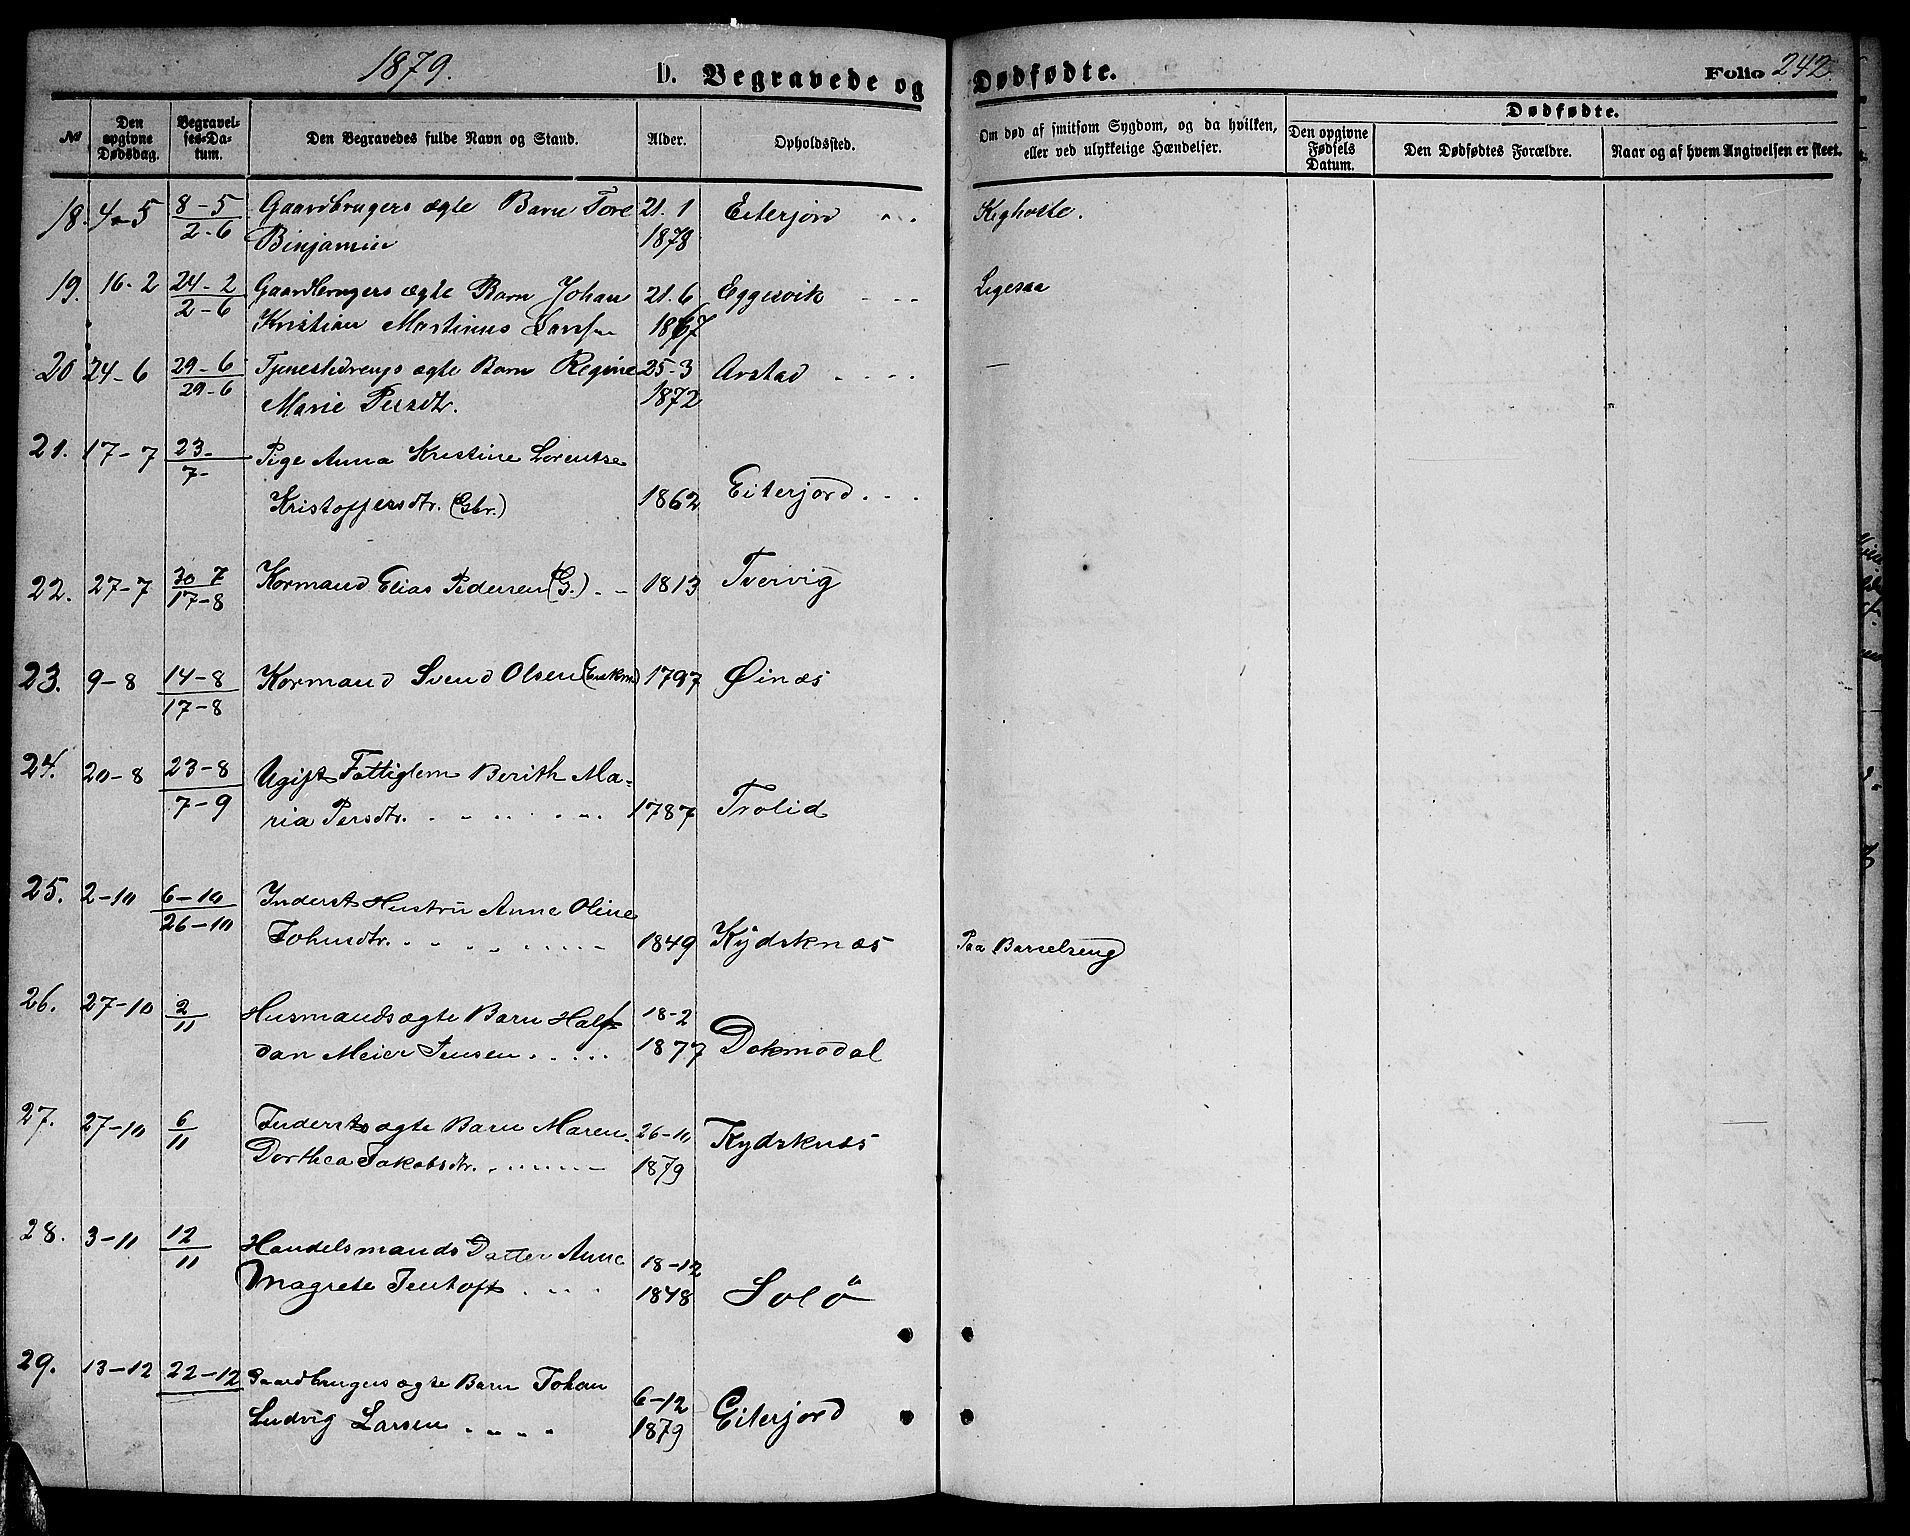 1879.
D. Begravede og Dødfødte.
Folio 242.
Dødfødte.
№
Den opgivne Dødsdag.
Begravelses-Datum.
Den Begravedes fulde Navn og Stand.
Alder.
Opholdssted.
Om død af smitsom Sygdom, og da hvilken, eller ved ulykkelige Hændelser.
Den opgivne Fødsels Datum.
Den Dødfødtes Forældre.
Naar og af hvem Angivelsen er skeet.
18. 4-5 8-5 Gaardbrugers ægte Barn Tore 21.1 Eiterjord Kighoste.
2-6 Binjamin 1878
19. 16-2 24-2 Gaardbrugers ægte Barn Johan 21.6 Eggesvik Ligesaa
2-6 Kristian Martinus Larsen 1867
20 24-6 29-6 Tjenestedrengs ægte Barn Regine 25-3 Arstad —
29-6 Marie Persdtr. 1872
21. 17-7 23- Pige Anna Kristine Lorentse
7- Kristoffersdtr. (Gbr.) 1862 Eiterjord
22. 27-7 30 7 Kormand Elias Pedersen (G.) 1813 Tvervig
17-8
23. 9-8 14-8 Kormand Svend Olsen (Enkm) 1797 Øinæs
17-8
24. 20-8 23-8 Ugift Fattiglem Berith Ma-
7-9 ria Persdtr. 1787 Trolid
25. 2-10 6-10 Inderst Hustru Anne Oline
26-10 Johnsdtr. 1849 Kydsknæs Paa Barselseng
26. 27-10 2 Husmands ægte Barn Half- 18-2
11 dan Meier Jensen 1877 Dokmodal
27. 27-10 6 Inderst ægte Barn Maren 26-10 Kydsknæs
11 Dorthea Jakobsdtr. 1879
28. 3-11 12 Handelsmands Datter Anne 18-12
11 Magrete Jentoft 1848 Solö
29. 13-12 22-12 Gaardbrugers ægte Barn Johan 6-12 Eiterjord
Ludvig Larsen 1879